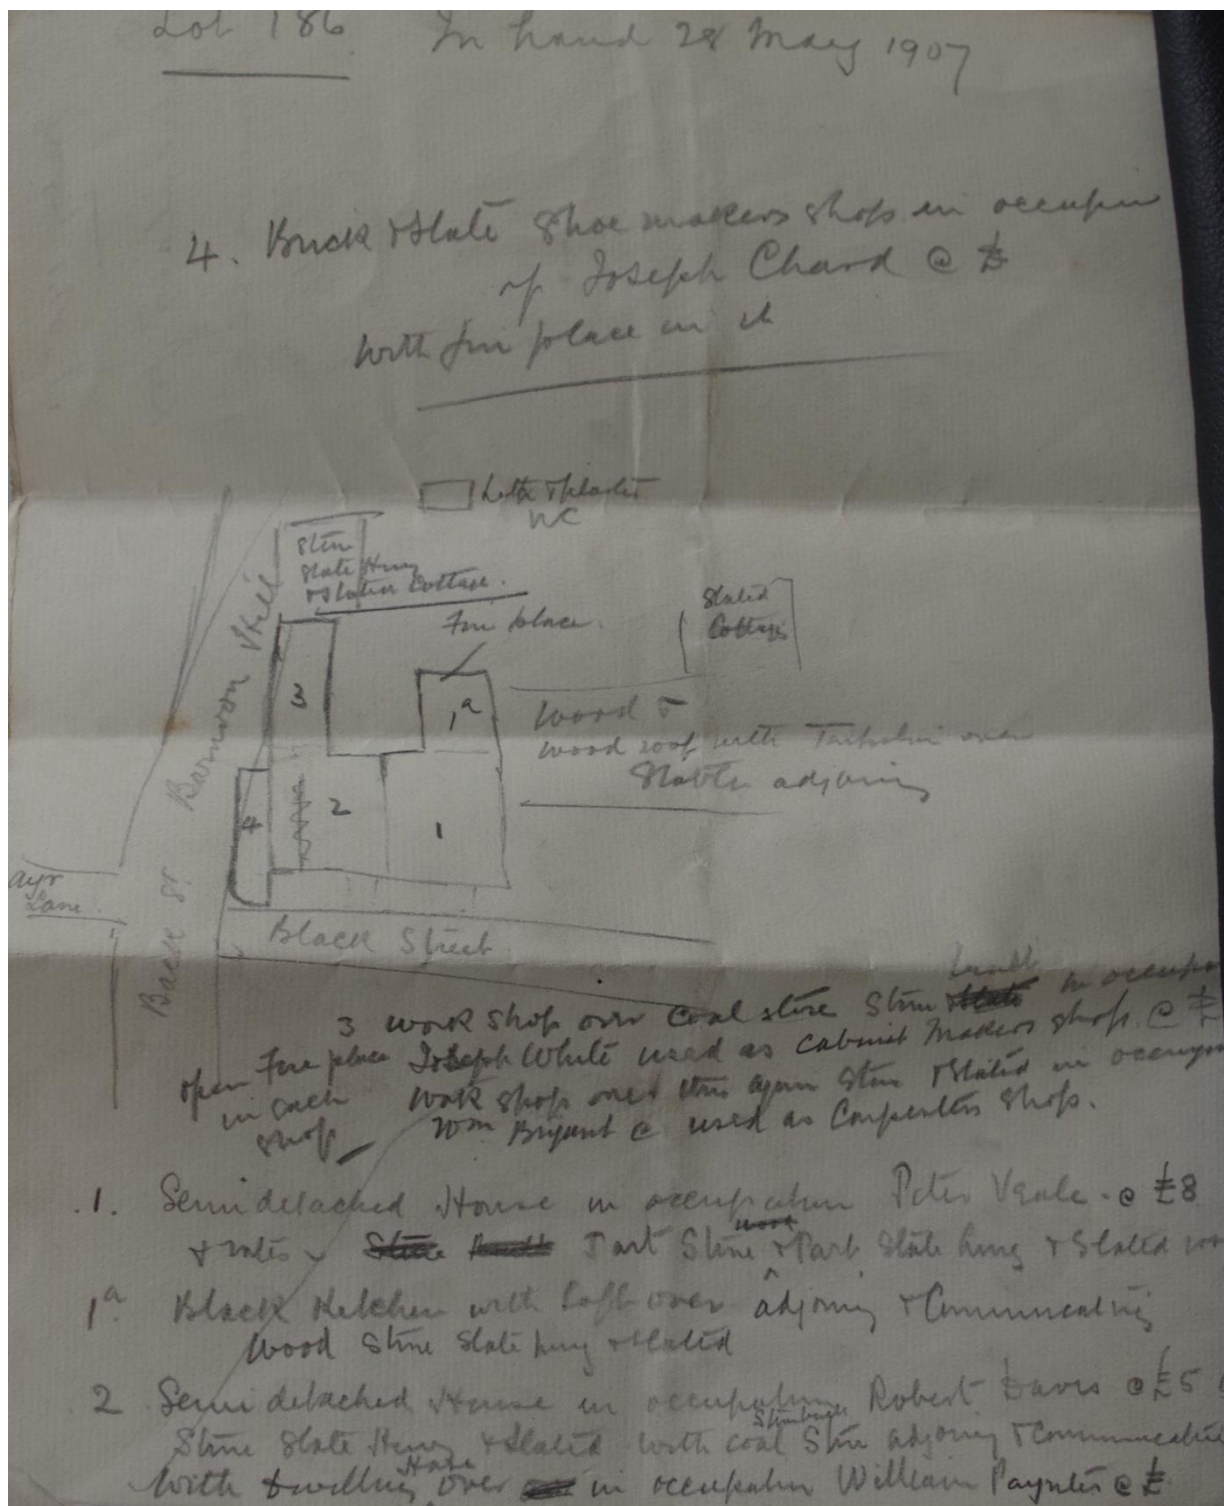 Lot 186 In hand 28 May 1907
4. Brick & Slate Shoe makers shop in occupn
of Joseph Chard @ £
with fire place in it
Lathe & Plaster
WC
Stone
Slate Hung
& Slated Cottage.
Fire place.
Slated
Cottage
3
1a
Wood &
wood roof with Tarpalin over
Stable adjoining
4
2
1
Barnoon Hill
Ayr
Lane.
Back St
Black Street
3 work shop over Coal store Stone Slate built in occupn
open Fire place Joseph White used as Cabinet Makers shop @ £
in each work shop over this again Stone & Slated in occupn
shop Wm Bryant @ used as Carpenters Shop.
1. Semi detached House in occupation Peter Veale. @ £8
& rates Stone Built Part Stone wood & Part Slate hung & Slated
1a. Black Kitchen with Loft over adjoining & Communicating
Wood Stone Slate hung & slated
2 Semi detached House in occupation Robert Davis @ £5
Stone Slate Hung & Slated with coal Store adjoining & Communicating
With Dwelling House over in occupation William Paynter @ £